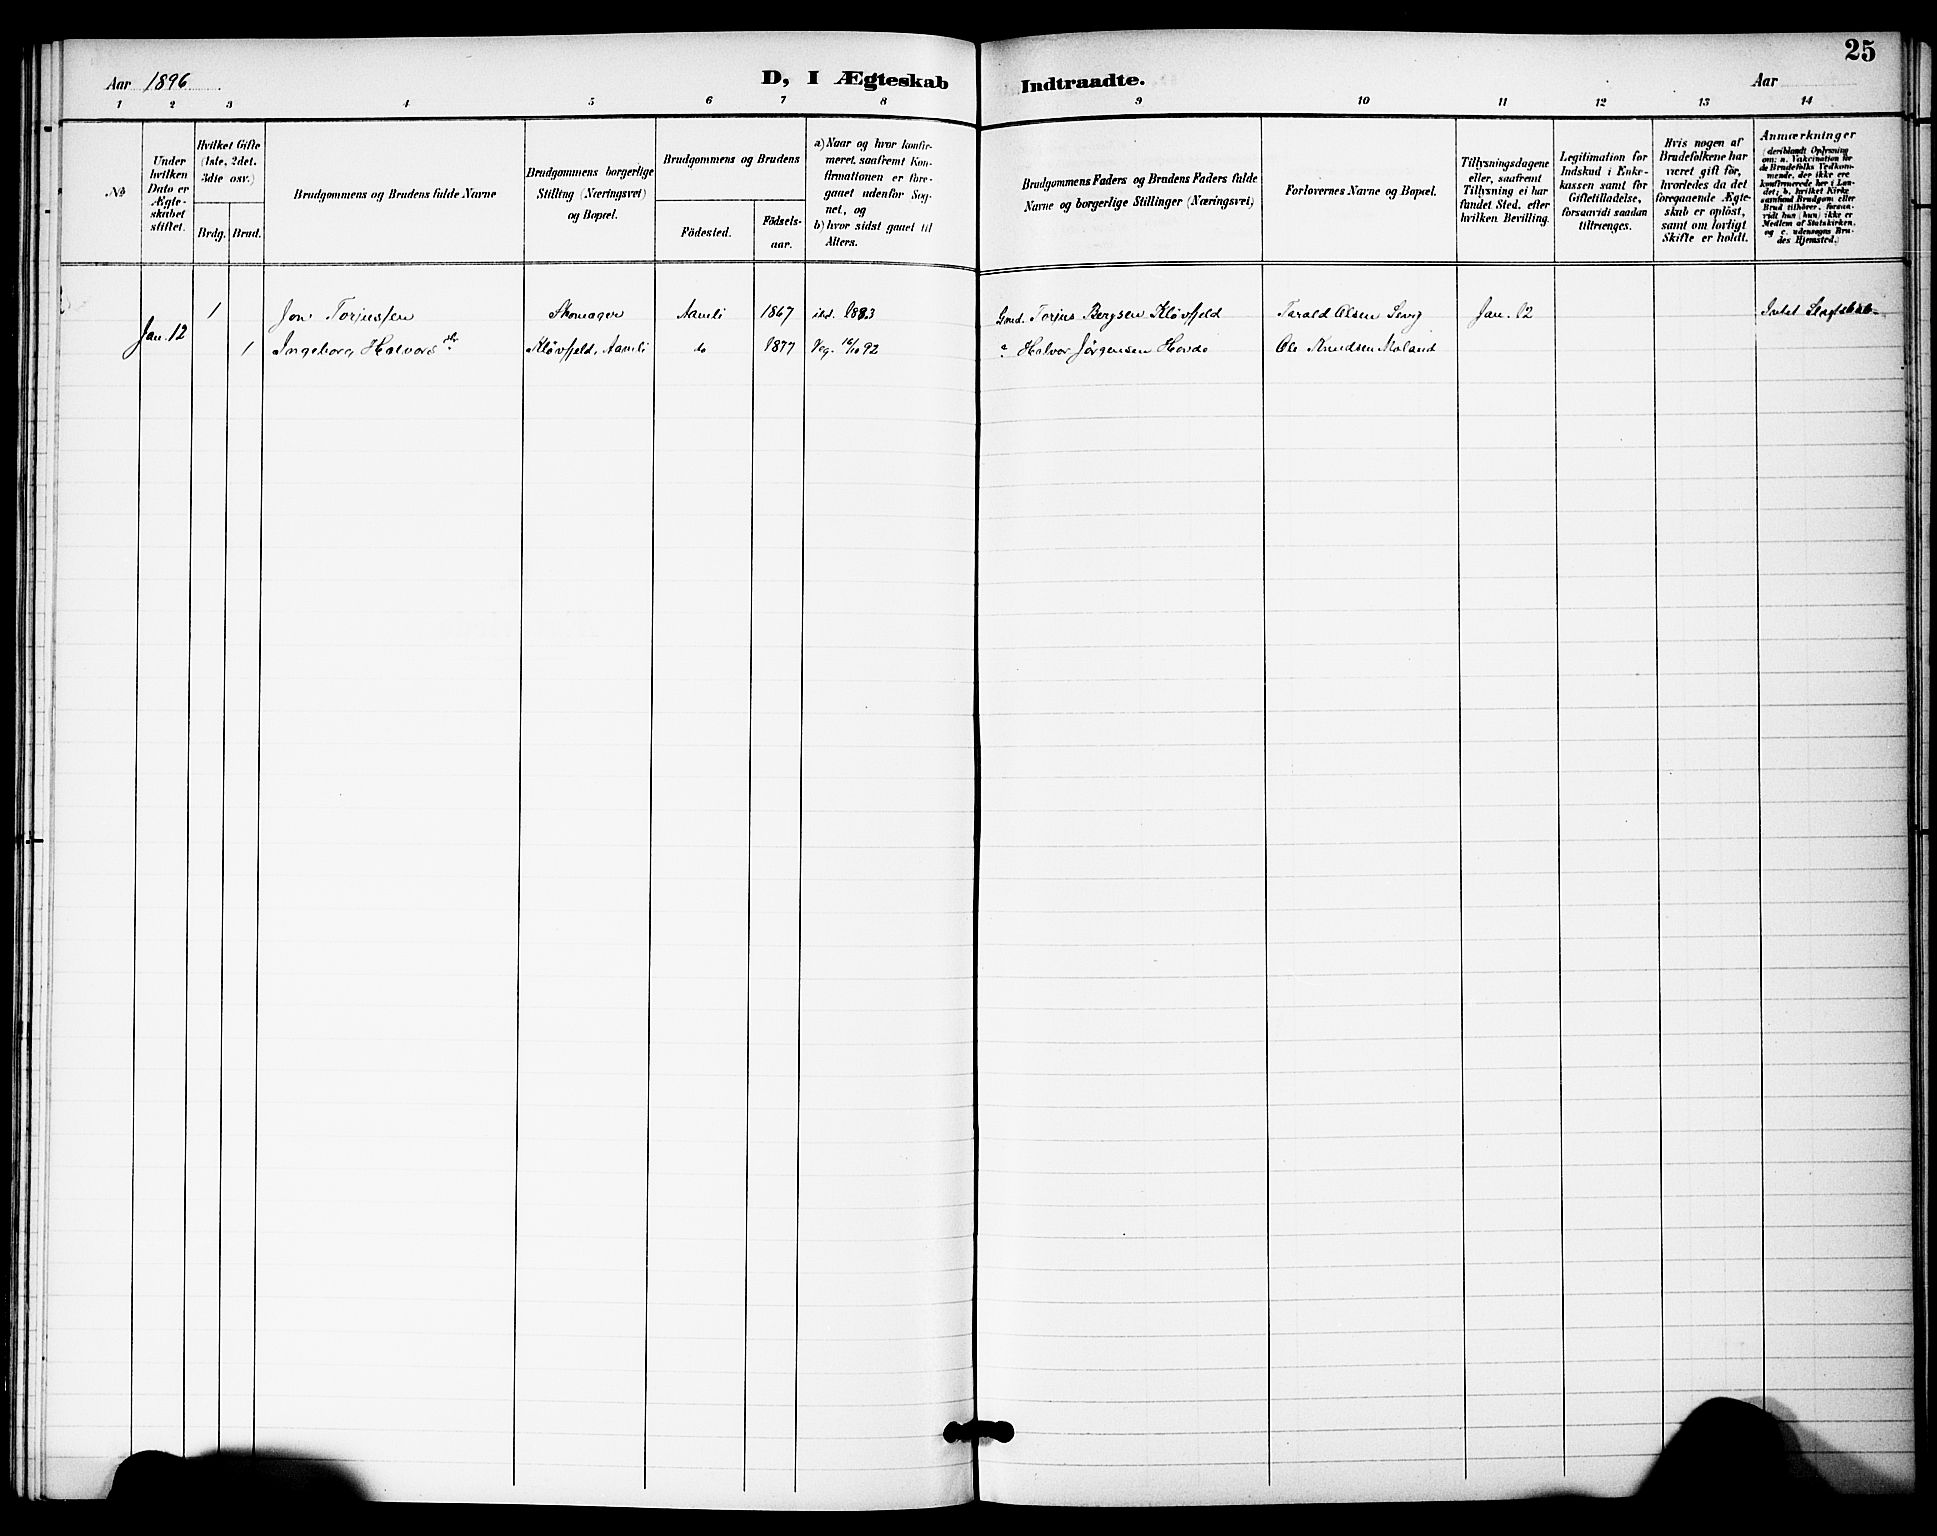 25
Aar 1896
D, I Ægteskab Indtraadte.
Aar
1 2 3 4 5 6 7 8 9 10 11 12 13 14
No
Under
hvilken
Dato er
Ægte-
skabet
stiftet.
Hvilket Gifte
(1ste, 2det,
3die osv.)
Brdg. Brud.
Brudgommens og Brudens fulde Navne
Brudgommens borgerlige
Stilling (Næringsvei)
og Bopæl.
Brudgommens og Brudens
Fødested.
Fødsels-
aar.
a) Naar og hvor konfir-
meret, saafremt Kon-
firmationen er fore-
gaaet udenfor Sog-
net, og
b) hvor sidst gaaet til
Alters.
Brudgommens Faders og Brudens Faders fulde
Navne og borgerlige Stillinger (Næringsvei)
Forlovernes Navne og Bopæl.
Tillysningsdagene
eller, saafremt
Tillysning ei har
fundet Sted, efter
hvilken Bevilling.
Legitimation for
Indskud i Enke-
kassen samt for
Giftetilladelse,
forsaavidt saadan
tiltrænges.
Hvis nogen af
Brudefolkene har
været gift før,
hvorledes da det
foregaaende Ægte-
skab er opløst,
samt om lovligt
Skifte er holdt.
Anmærkninger
(deriblandt Oplysning
om: a. Vakcination for
de Brudefolks Vedkom-
mende, der ikke ere
konfirmerede her i Lan-
det; b. hvilket Kirke-
samfund Brudgom eller
Brud tilhører, forsaa-
vidt han (hun) ikke er
Medlem af Statskirken,
og c. udensogns Bru-
des Hjemsted.)
1 Jon Torjussen Skomager Aamli 1867 1883 Gmd. Torjus Bergsen Kløvfjeld Tarald Olsen Jan. 12 Intet Slægtskab
Jan. 12 1 Ingeborg Halvorsdtr Kløvfjeld, Aamli do 1877 Veg. 16/10 92 Halvor Jørgensen Hovde Ole Knudsen Moland